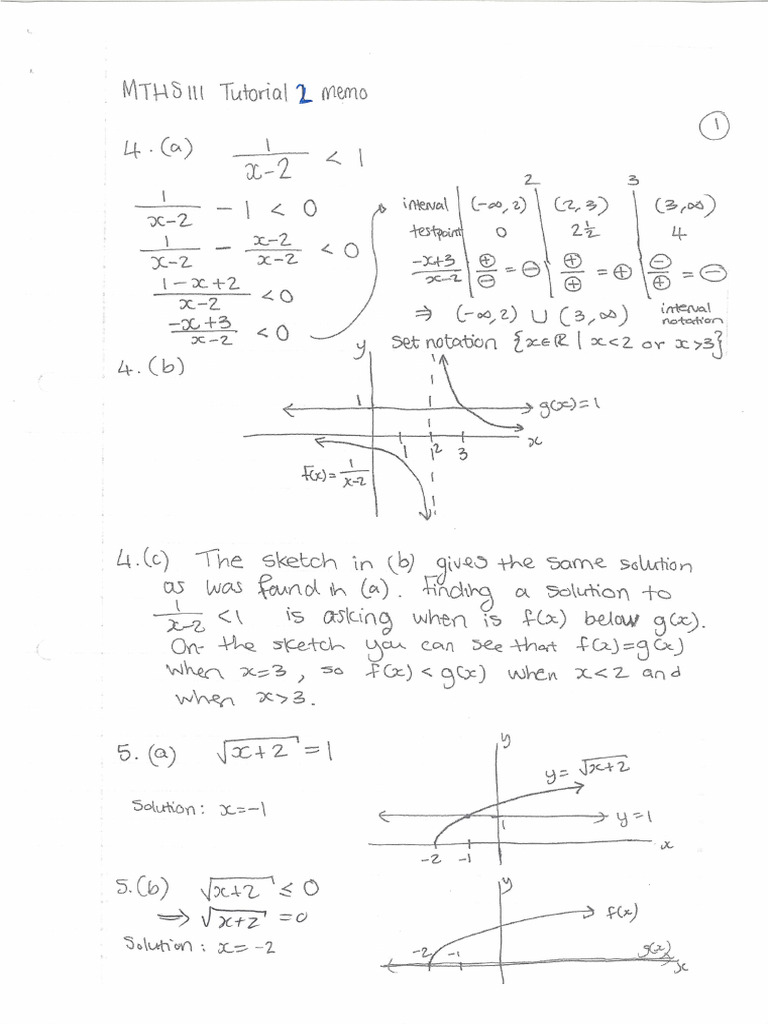 MTHS111 Tutorial 2 memo
1
4.(a) 1/(x-2) < 1
1/(x-2) - 1 < 0
1/(x-2) - (x-2)/(x-2) < 0
(1-x+2)/(x-2) < 0
(-x+3)/(x-2) < 0
2 3
interval (-∞,2) (2,3) (3,∞)
testpoint 0 2½ 4
(-x+3)/(x-2) ⊕/⊖ = ⊖ ⊕/⊕ = ⊕ ⊖/⊕ = ⊖
⇒ (-∞,2) ∪ (3,∞) interval notation
set notation {x∈ℝ | x<2 or x>3}
4.(b)
y
1
g(x)=1
x
1 2 3
f(x)=1/(x-2)
4.(c) The sketch in (b) gives the same solution
as was found in (a). Finding a solution to
1/(x-2) < 1 is asking when is f(x) below g(x).
On the sketch you can see that f(x)=g(x)
when x=3, so f(x) < g(x) when x<2 and
when x>3.
5.(a) √(x+2) = 1
Solution: x=-1
y
y=√(x+2)
y=1
1
-2 -1
x
5.(b) √(x+2) ≤ 0
⇒ √(x+2) = 0
Solution: x=-2
y
f(x)
-2 -1
g(x)
x